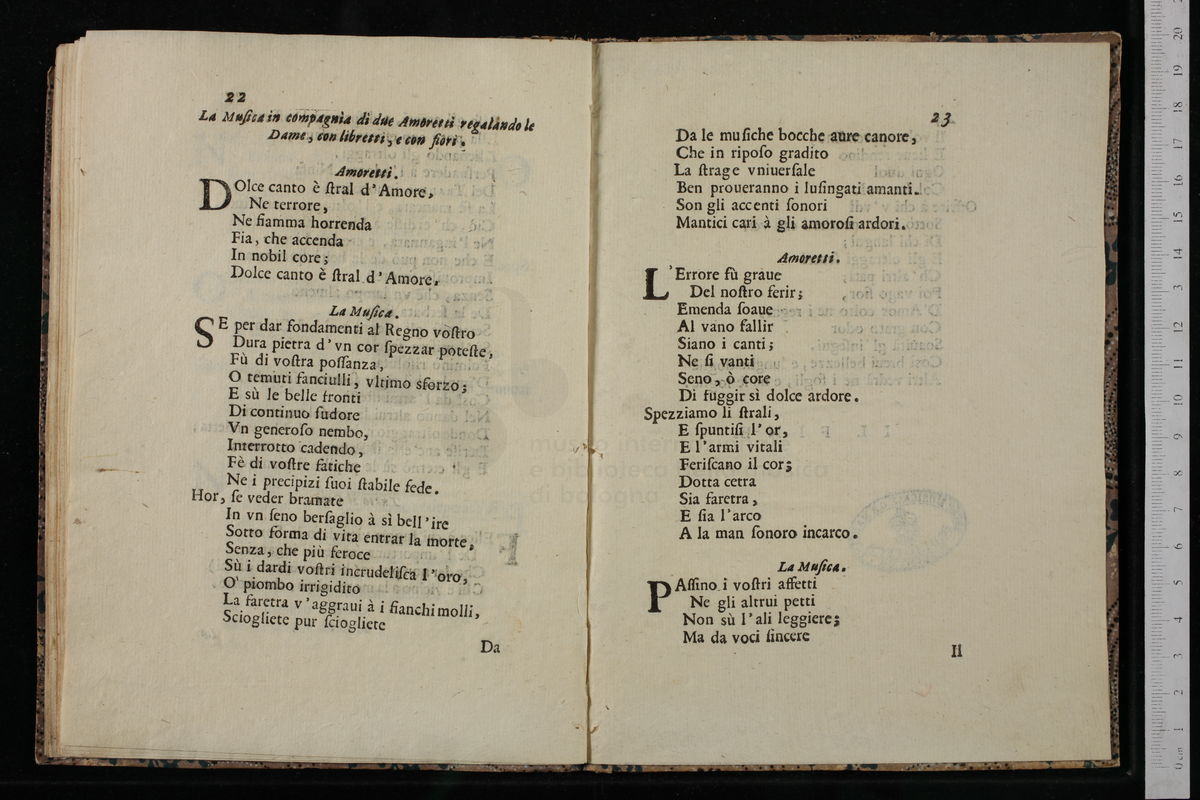 22
La Muſica in compagnia di due Amoretti regalando le
Dame, con libretti, e con fiori.
Amoretti.
DOlce canto è ſtral d'Amore,
Ne terrore,
Ne fiamma horrenda
Fia, che accenda
In nobil core;
Dolce canto è ſtral d'Amore,
La Muſica.
SE per dar fondamenti al Regno vòſtro
Dura pietra d'vn cor ſpezzar poteſte,
Fù di voſtra poſſanza,
O temuti fanciulli, vltimo sforzo;
E sù le belle fronti
Di continuo ſudore
Vn generoſo nembo,
Interrotto cadendo,
Fè di voſtre fatiche
Ne i precipizi ſuoi ſtabile fede.
Hor, ſe veder bramate
In vn ſeno berſaglio à sì bell'ire
Sotto forma di vita entrar la morte,
Senza, che più feroce
Sù i dardi voſtri incrudeliſca l'oro,
O' piombo irrigidito
La faretra v'aggraui à i fianchi molli,
Sciogliete pur ſciogliete
Da
23
Da le muſiche bocche aure canore,
Che in ripoſo gradito
La ſtrage vniuerſale
Ben proueranno i luſingati amanti.
Son gli accenti ſonori
Mantici cari à gli amoroſi ardori.
Amoretti.
L'Errore fù graue
Del noſtro ferir;
Emenda ſoaue
Al vano fallir
Siano i canti;
Ne ſi vanti
Seno, ò core
Di fuggir sì dolce ardore.
Spezziamo li ſtrali,
E ſpuntiſi l'or,
E l'armi vitali
Feriſcano il cor;
Dotta cetra
Sia faretra,
E ſia l'arco
A la man ſonoro incarco.
La Muſica.
PAſſino i voſtri affetti
Ne gli altrui petti
Non sù l'ali leggiere;
Ma da voci ſincere
Il